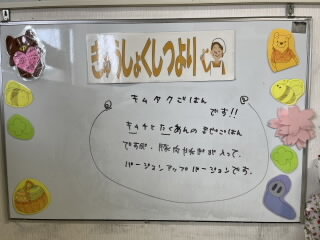 きゅうしょくしつより
キムタクごはん
です!!
キムチとたくあんのまぜごはん
ですが、豚肉やねぎが入って、
バージョンアップバージョンです。